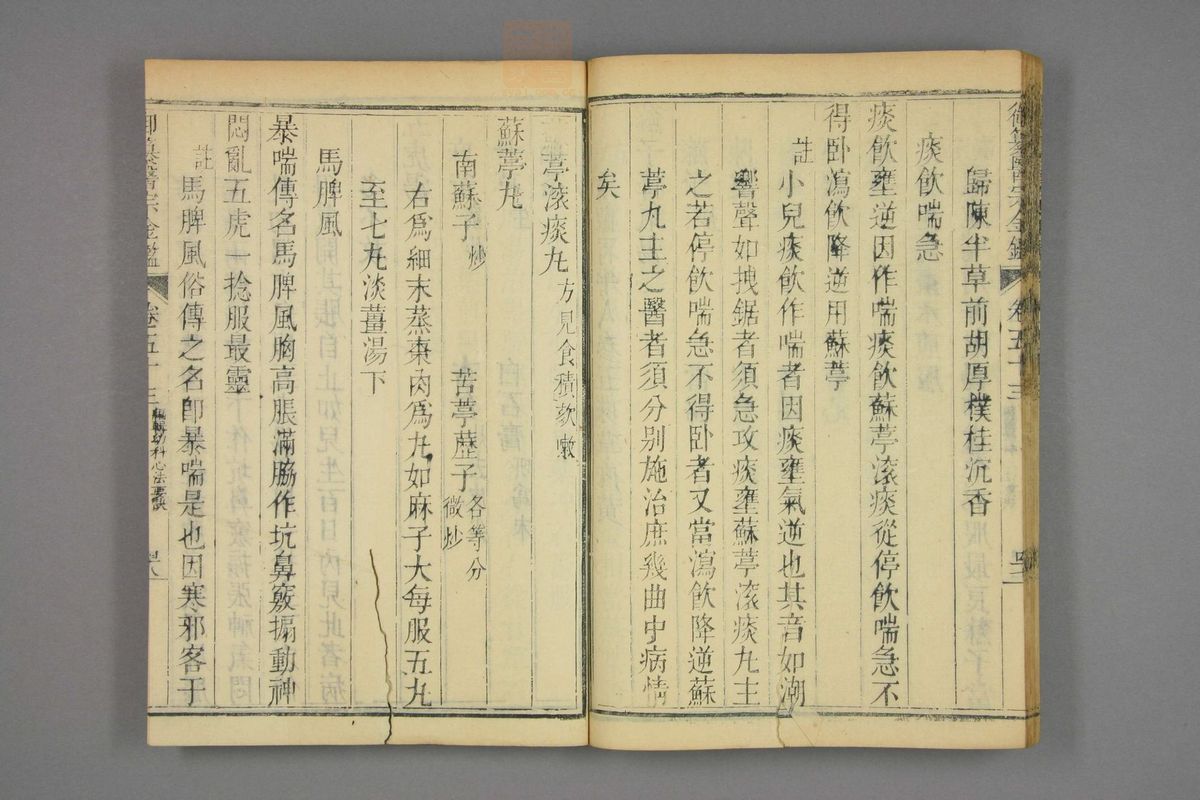 御纂醫宗金鑑 卷五十三
歸陳半草前胡厚樸桂沉香
痰飲喘急
痰飲壅逆因作喘痰飲蘇葶滚痰從停飲喘急不
得卧瀉飲降逆用蘇葶
註 小兒痰飲作喘者因痰壅氣逆也其音如潮
響聲如拽鋸者須急攻痰壅蘇葶滚痰丸主
之若停飲喘急不得卧者又當瀉飲降逆蘇
葶丸主之醫者須分别施治庶幾曲中病情
矣
葶滚痰丸 方見食積欬嗽
蘇葶丸
南蘇子 炒 苦葶藶子 各等分 微炒
右爲細末蒸棗肉爲丸如麻子大每服五丸
至七丸淡薑湯下
馬脾風
暴喘傳名馬脾風胸高脹滿脇作坑鼻竅搧動神
悶亂五虎一捻服最靈
註 馬脾風俗傳之名即暴喘是也因寒邪客于
御纂醫宗金鑑 卷五十三 編輯幼科心法要訣 四八